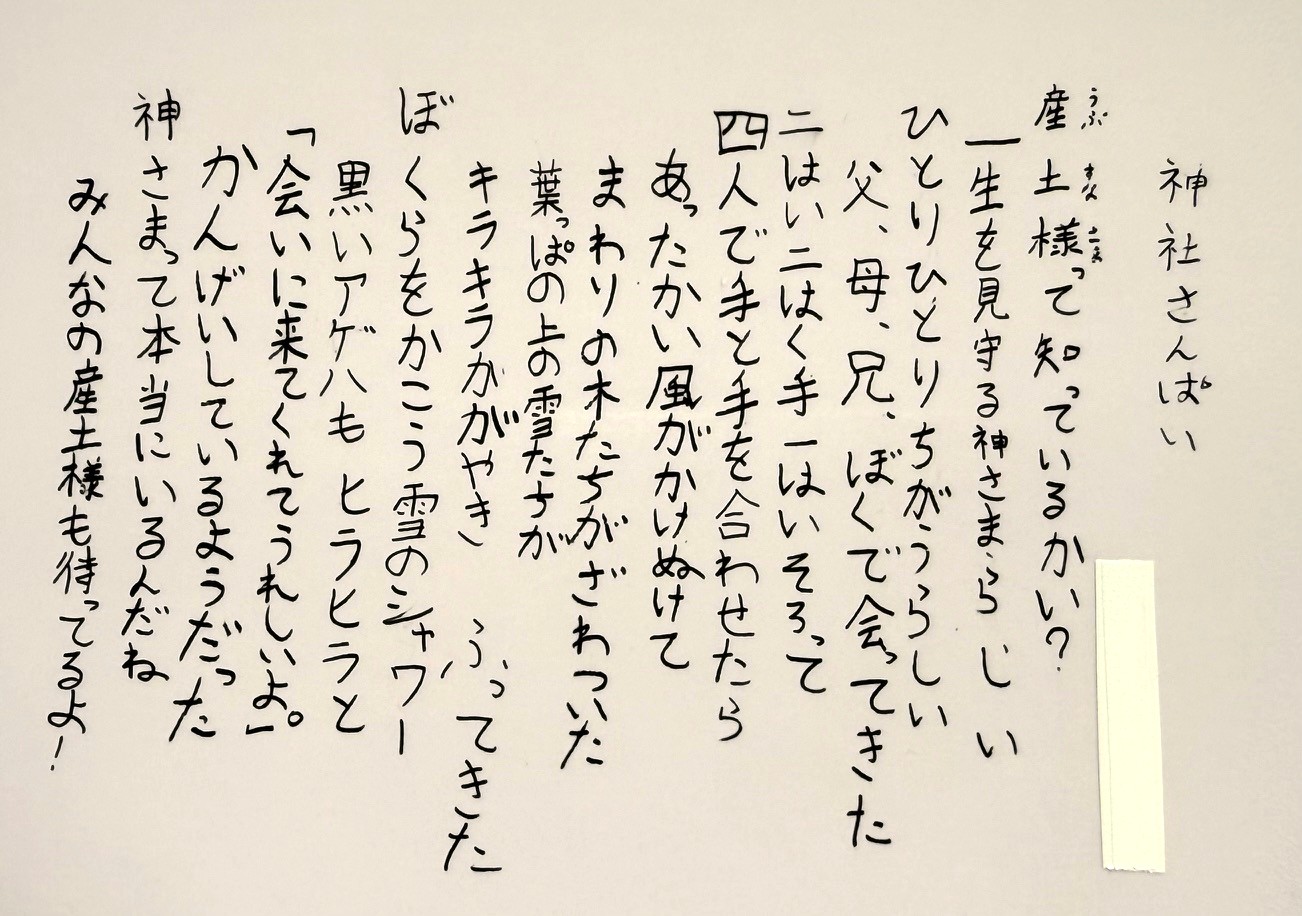 神社さんぱい
産土様って知っているかい？
うぶ すな さま
一生を見守る神さまらしい
ひとりひとりちがうらしい
父、母、兄、ぼくで会ってきた
二はい二はく手一はいそろって
四人で手と手を合わせたら
あったかい風がかけぬけて
まわりの木たちがざわついた
葉っぱの上の雪たちが
キラキラかがやき ふってきた
ぼくらをかこう雪のシャワー
黒いアゲハもヒラヒラと
「会いに来てくれてうれしいよ。」
かんげいしているようだった
神さまって本当にいるんだね
みんなの産土様も待ってるよ！